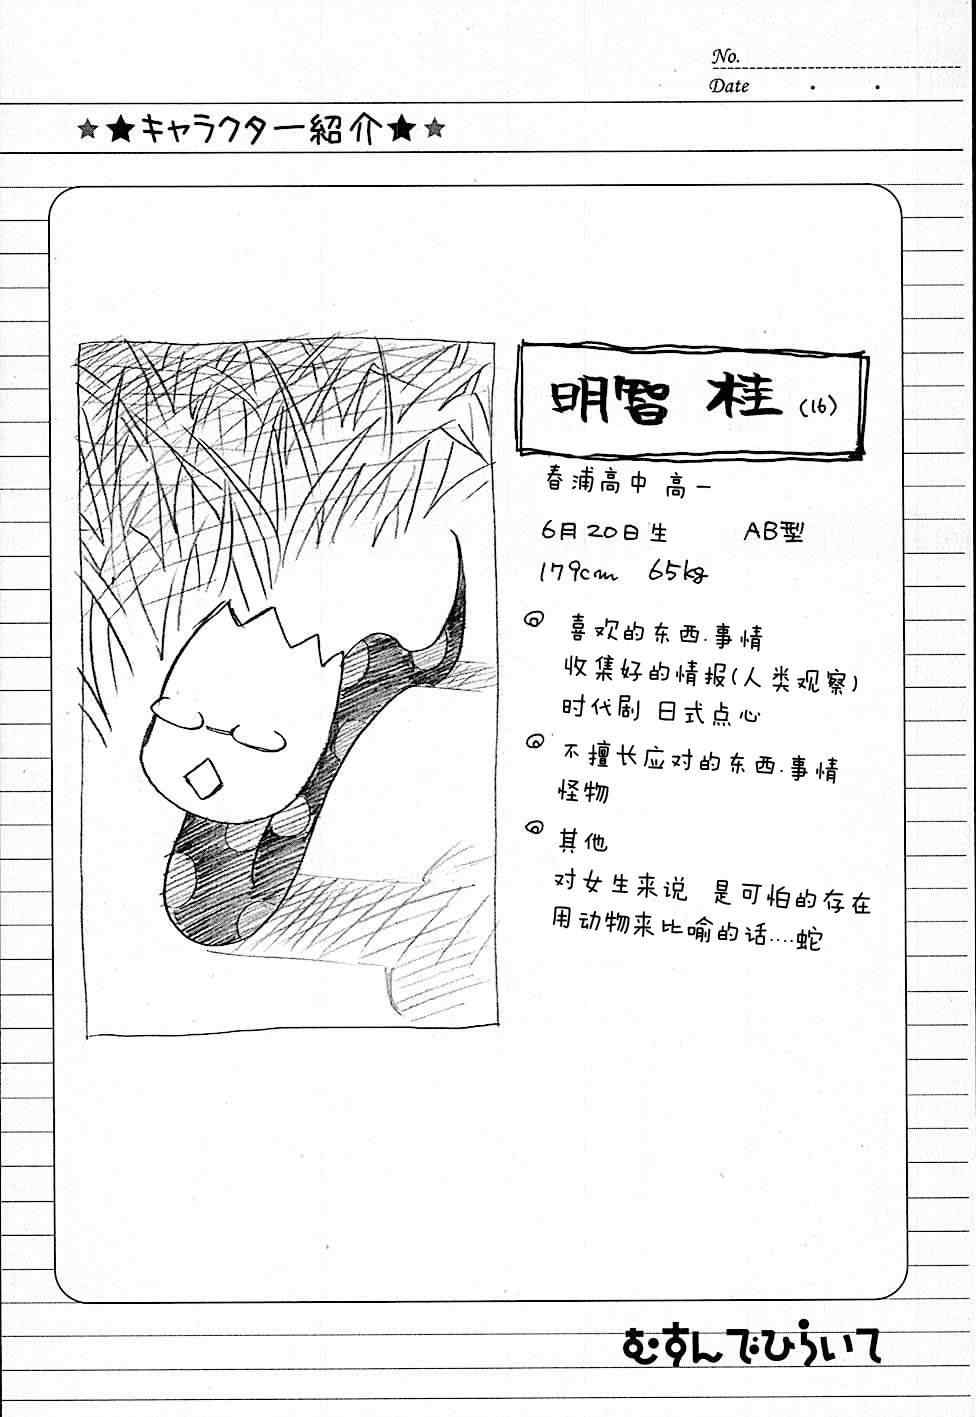 No.
Date
★★キャラクター紹介★★
明智 桂 (16)
春浦高中 高一
6月20日生 AB型
179cm 65kg
喜欢的东西.事情
收集好的情报(人类观察)
时代剧 日式点心
不擅长应对的东西.事情
怪物
其他
对女生来说 是可怕的存在
用动物来比喻的话....蛇
むすんでひらいて